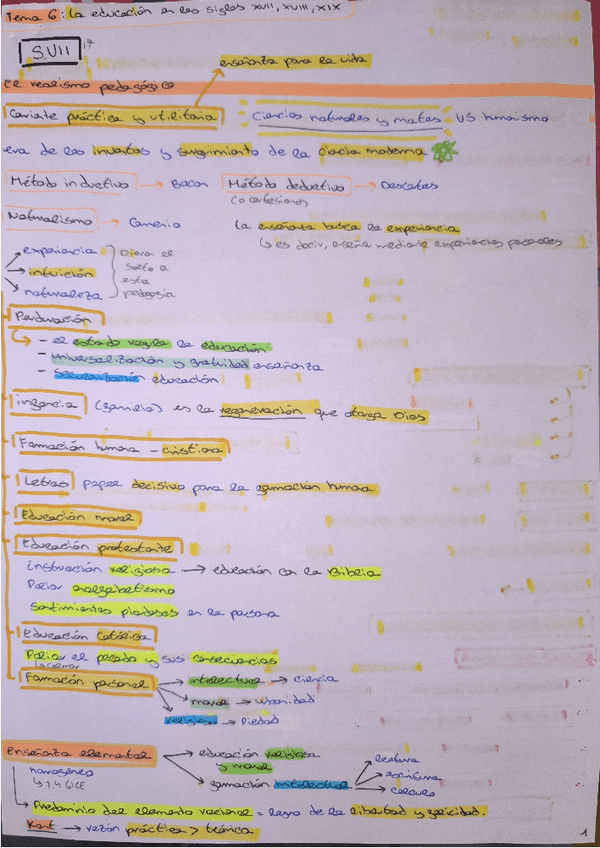 Tema 6: La educación en los siglos XVII, XVIII, XIX
S.VII 17
enseñanza para la vida
El realismo pedagógico
Cariate práctica y utilitaria
Ciencias naturales y mates VS humaismo
era de los inventos y surgimiento de la ciecia moderna
Método inductivo → Bacon
Método deductivo → Descates
(o cartesiano)
Naturalismo → Comenio
La enseñanta busca la experiencia
↳ es decir, enseña mediante experiencias personales
experiencia
intuición
naturaleza
Diera el
salto a
esta
pedagogía
- el estado regula la educación
- universalización y gratuidad enseñanza
- Secularización educación
ingancia (gamilia) es la regeneración que otorga Dios
Formación humana - cristiana
Letras papel decisivo para la gormación humana
Educación moral
Educación protestante
instrucción religiosa → educación con la Biblia
Paliar analgabetismo
Sentimientos piadosos en la persona
Educación Católica
Paliar el pecado y sus consecuencias
Formación personal
→ intelectual → ciencia
→ moral → Urbanidad
→ religiosa → Piedad
Enseñanza elemental
→ educación religiosa
y moral
→ gormación intelectual
→ lectura
→ escritura
→ cálculo
homogéneo
Predominio del elemento racional = logro de la libertad y gelicidad.
Kant → razón práctica > teórica
1